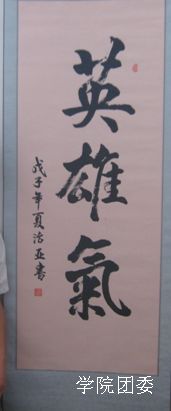 英雄氣
戊子年夏治亚書
学院团委